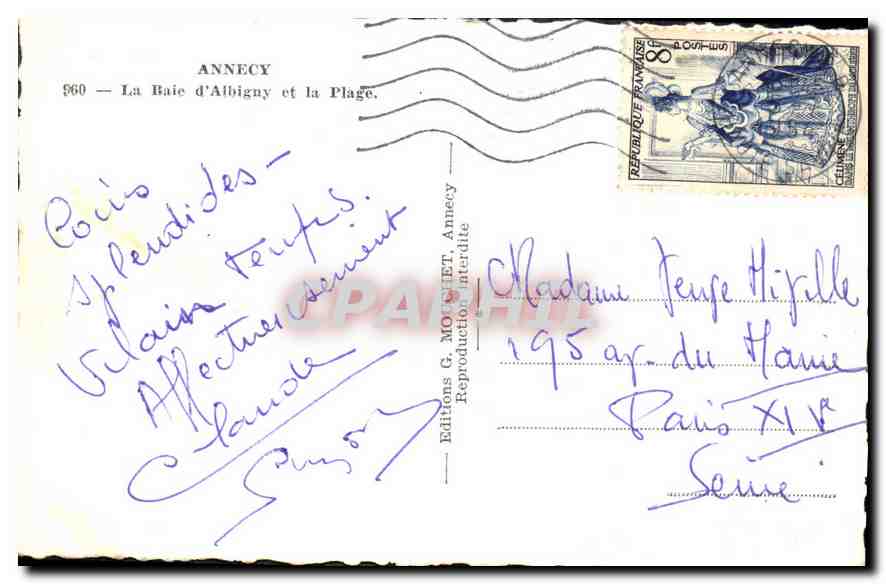 ANNECY
960 — La Baie d'Albigny et la Plage.
Coins
splendides -
Vilain temps.
Affectueusement
Claude
Editions G. MOUCHET, Annecy
Reproduction interdite
RÉPUBLIQUE FRANÇAISE
8f
POSTES
CÉLIMÈNE
Madame
195 av. du Maine
Paris XIVe
Seine
CPARHIL